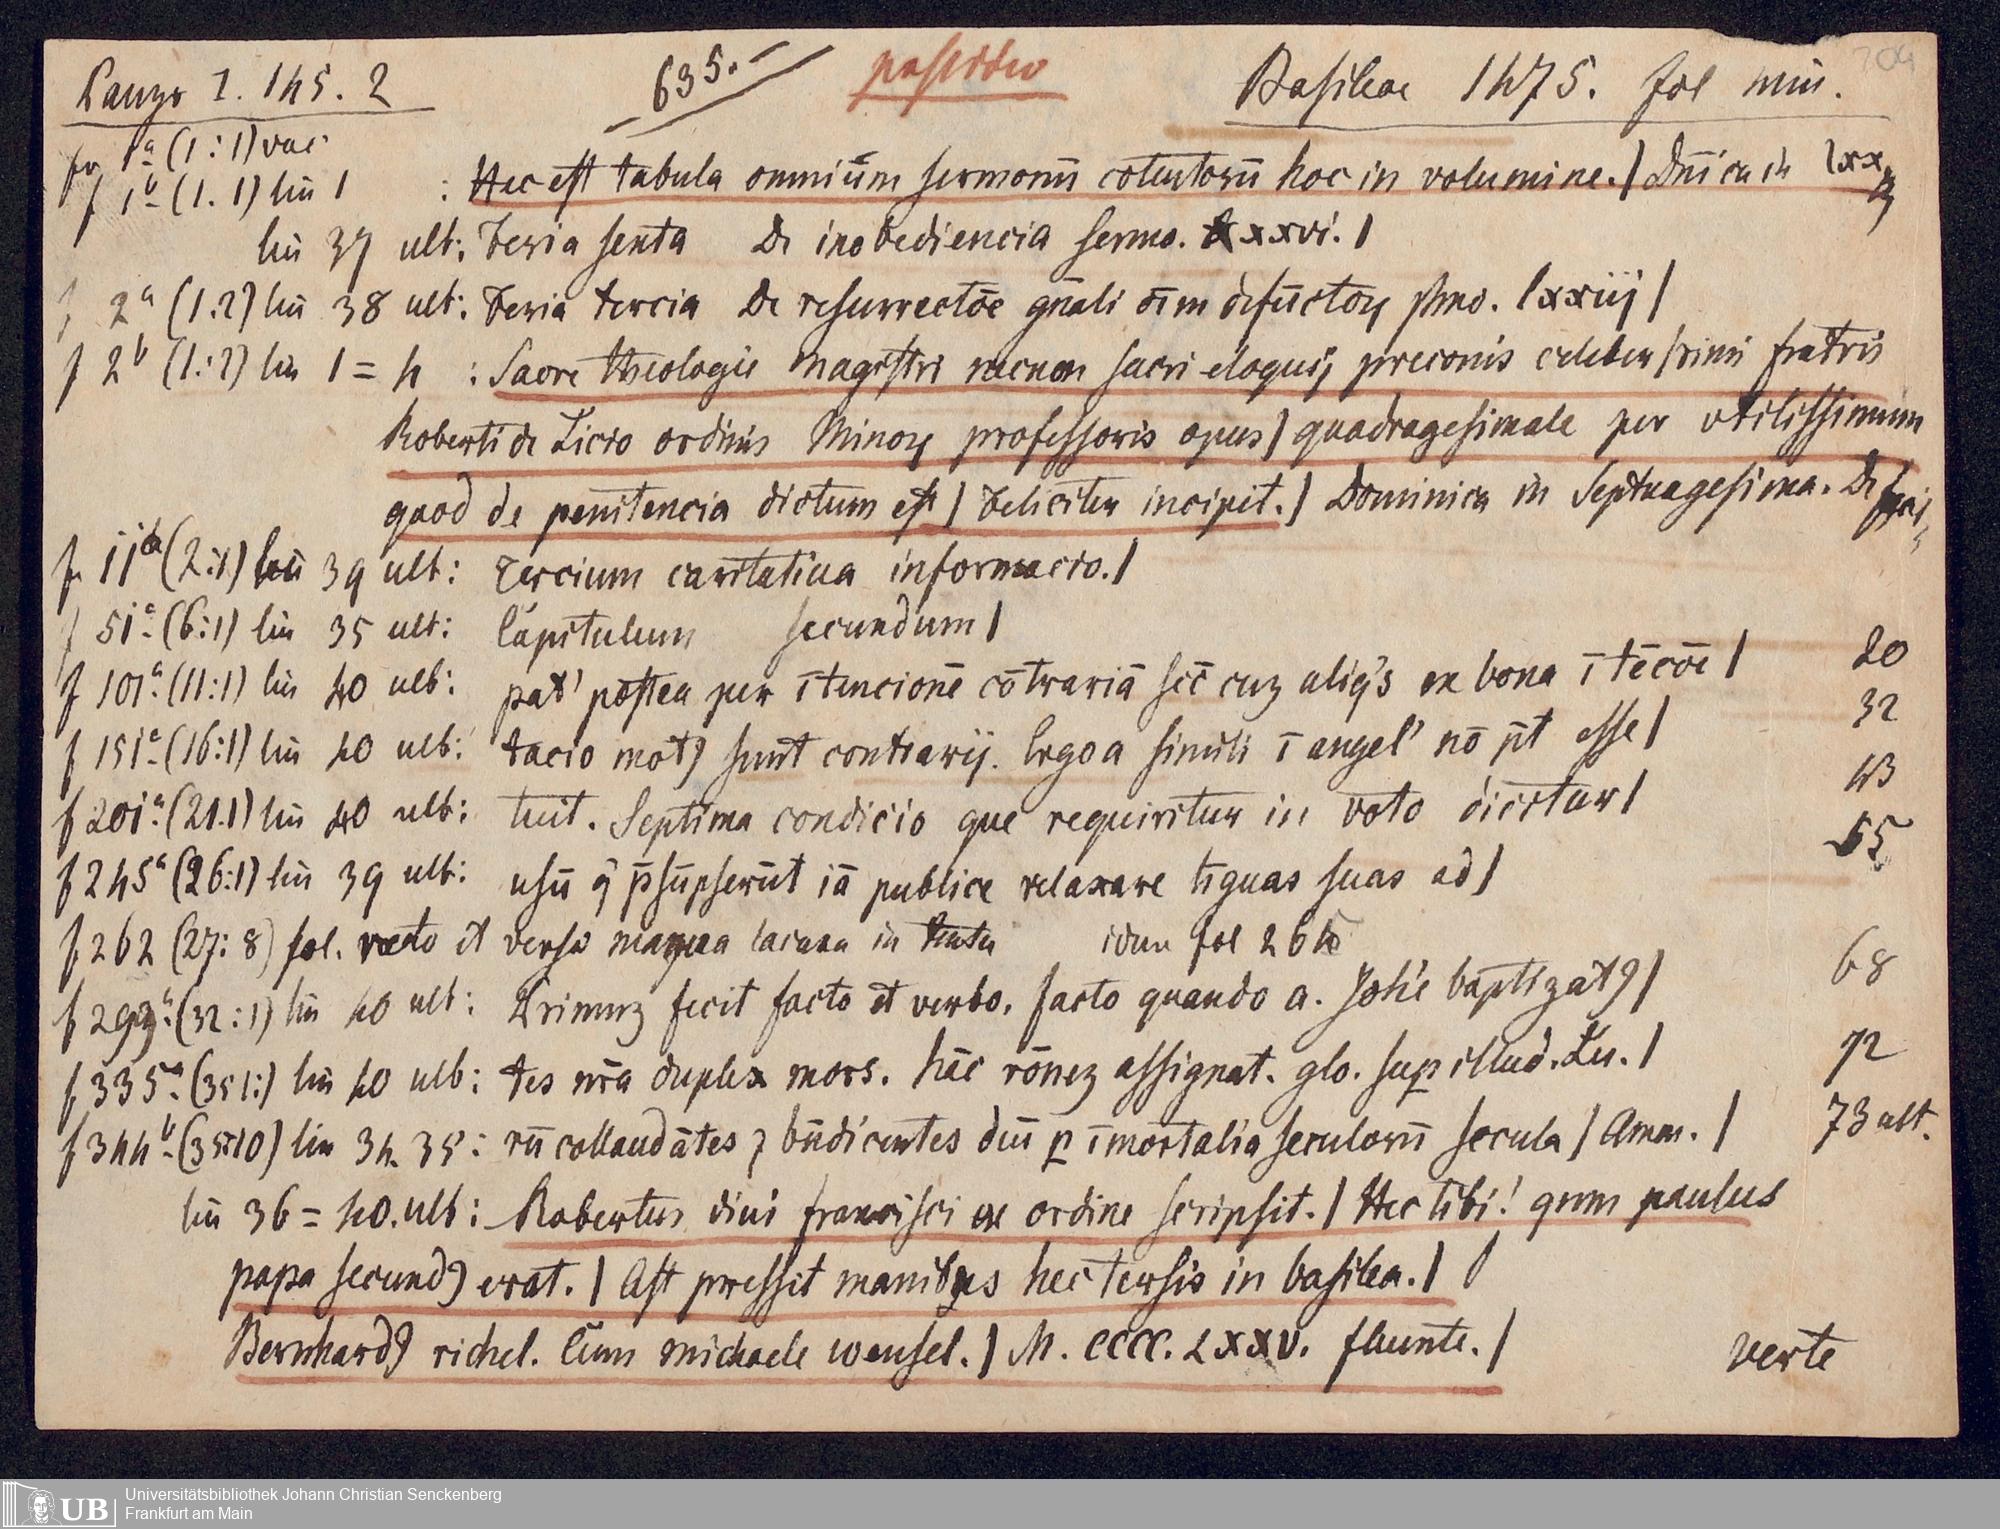 Panzer I. 145. 2 635. possideo Basileae 1475. fol min. 204
fo 1a (1:1) vac.
f 1b (1.1) lin 1 : Hec est tabula omniūm sermonū cōtentorū hoc in volumine. / Dn̄ica in lxx
lin 37 ult: Feria sexta De inobediencia sermo. xxxvi. /
f 2a (1.2) lin 38 ult: Feria tercia De resurrectōe gn̄ali oīm defūctoꝝ sermo. lxxiij /
f 2b (1:2) lin 1 = 4 : Sacre theologie magistri necnon sacri eloquij preconis celeber/rimi fratris
Roberti de Licio ordinis Minoꝝ professoris opus / quadragesimale per vtilissimum
quod de penitencia dictum est / Feliciter incipit. / Dominica in Septuagesima. De
f 11a (2:1) lin 39 ult: Tercium caritatiua informacio. /
f 51a (6:1) lin 35 ult: Capitulum secundum /
f 101a (11:1) lin 40 ult: pat' postea per ītencionē cōtrariā scꝫ cuꝫ aliq's ex bona ī tēcōe / 20
f 151a (16:1) lin 40 ult: tacio motꝰ sunt contrarij. Ergo a simili ī angel' nō pn̄t esse / 32
f 201a (21.1) lin 40 ult: tuit. Septima condicio que requiritur in voto dicitur / 43
f 245a (26:1) lin 39 ult: usū q̄ p̄sūpserūt iā publice relaxare līguas suas ad / 55
f 262 (27:8) fol. recto et verso magna lacuna in textu idem fol 264
f 293a (32:1) lin 40 ult: Primuꝫ fecit facto et verbo. facto quando a. Joh'e baptizatꝰ / 68
f 335a (35 1:) lin 40 ult: tes nr̄a duplex mors. hāc rōneꝫ assignat. glo. sup illud. Lu. / 72
f 344b (35:10) lin 34. 35: rū collaudātes ⁊ bn̄dicentes dn̄ū ꝑ īmortalia seculorū secula / Amen. / 73 ult.
lin 36 = 40. ult: Robertus diui francisci ex ordine scripsit. / Hec tibi! quum paulus
papa secundꝰ erat. / Ast pressit manibus hec tersis in basilea. / /
Bernhardꝰ richel. Cum michaele wensel. / M. CCCC. LXXV. fluunte. / verte
UB Universitätsbibliothek Johann Christian Senckenberg
Frankfurt am Main